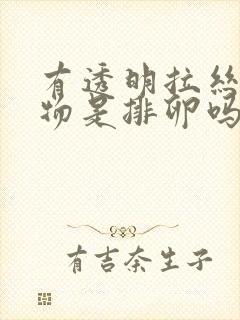 有透明拉丝
物是排卵吗
有吉奈生子